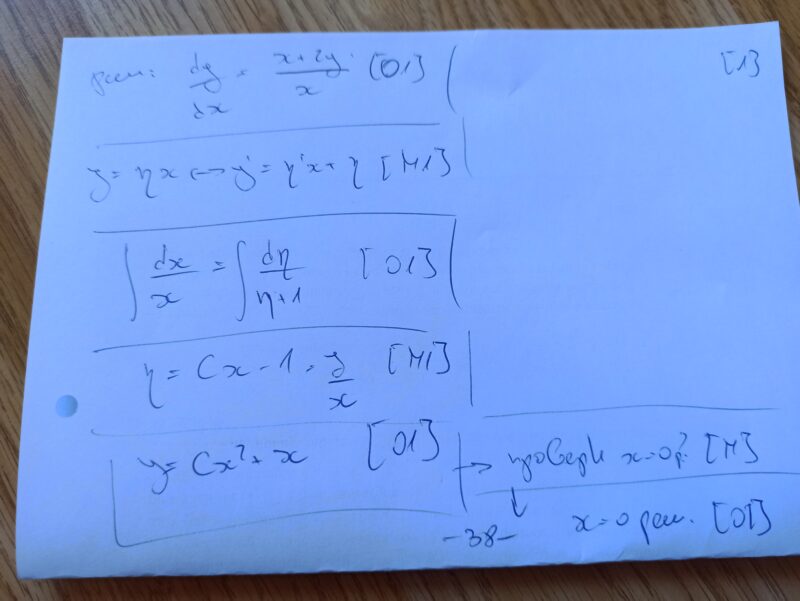 реши: dy/dx = (x+2y)/x [O1] [1]
y = ηx ↔ y' = η'x + η [M1]
∫ dx/x = ∫ dη/(η+1) [O1]
η = Cx - 1 = y/x [M1]
y = Cx² + x [O1] → провери x=0 р? [M]
-38- x=0 реш. [O1]